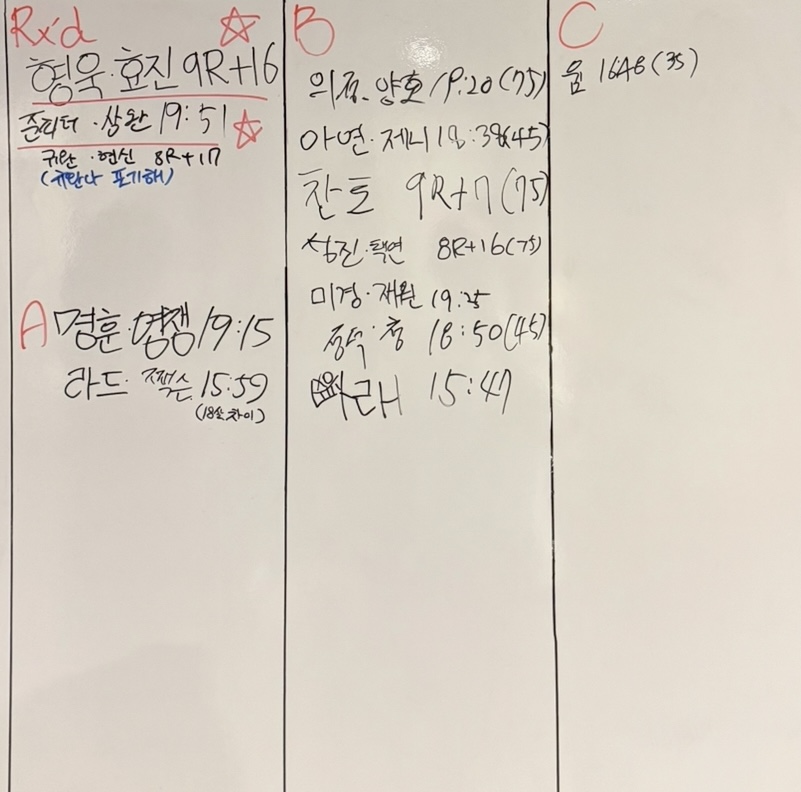 Rx'd
형욱·효진 9R+16
준피터·상완 19:51
귀완·현신 8R+17
(귀완나 포기해)
A 명훈·명쟁 19:15
라드·짹슨 15:59
(18살 차이)
B
의정·양호 19:20(75)
아연·제니 18:38(45)
찬토 9R+7(75)
상진·택연 8R+16(75)
미경·재원 19:25
정석·총 18:50(45)
15:47
C
움 1648(35)